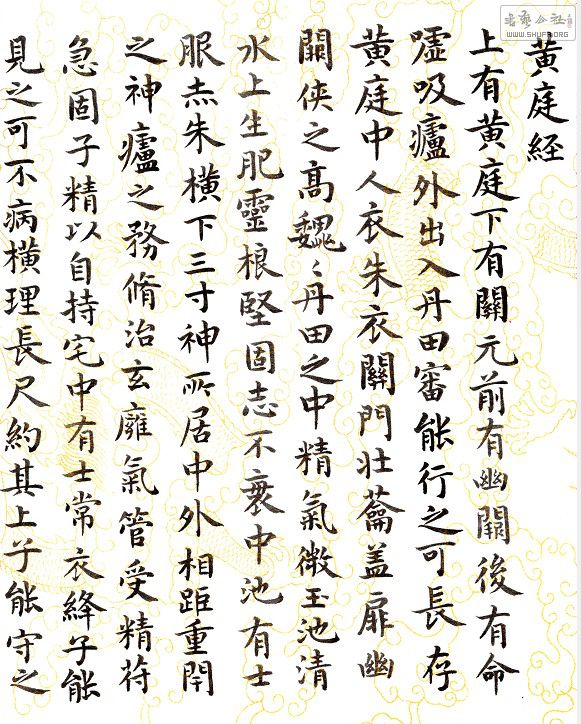 黄庭経
上有黄庭下有關元前有幽闕後有命
嘘吸廬外出入丹田審能行之可長存
黄庭中人衣朱衣關門壮蘥盖扉幽
闕侠之髙巍〻丹田之中精氣微玉池清
水上生肥靈根堅固志不衰中池有士
服赤朱横下三寸神所居中外相距重閇
之神廬之務脩治玄癰氣管受精苻
急固子精以自持宅中有士常衣絳子能
見之可不病横理長尺約其上子能守之
书艺公社
WWW.SHUFA.ORG